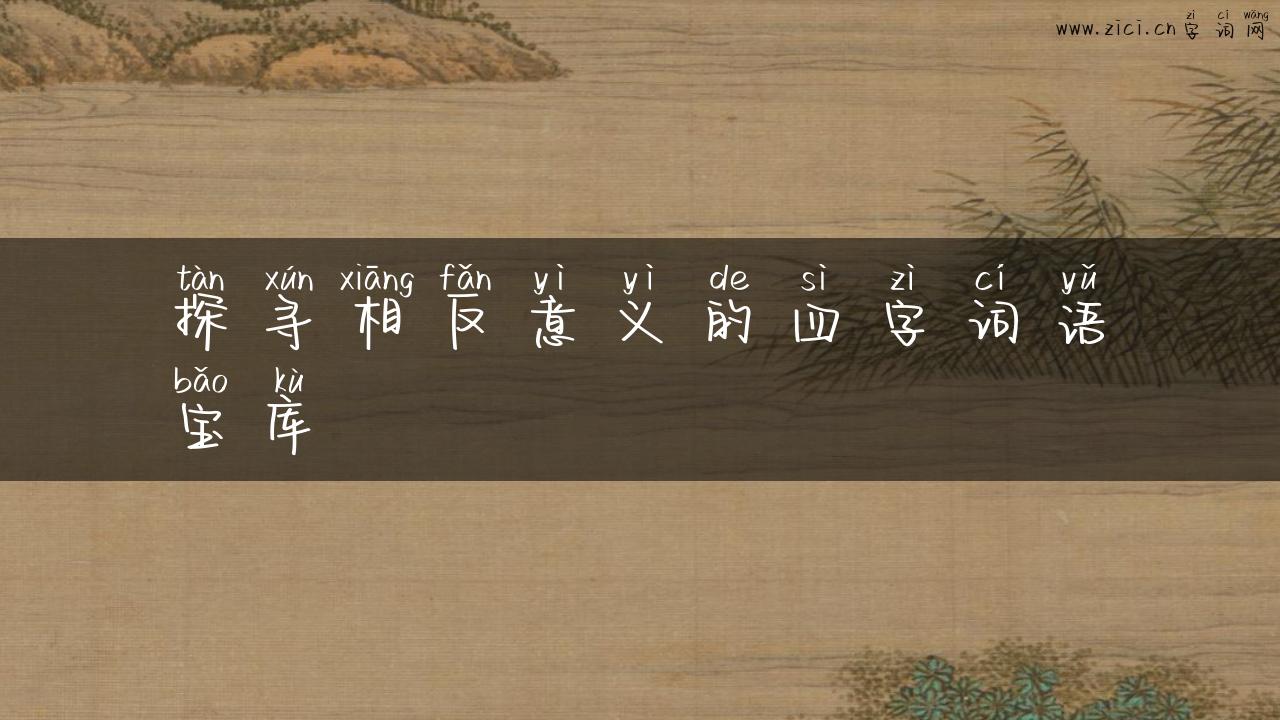 www.zici.cn字词网
zì cí wǎng
tàn xún xiāng fǎn yì yì de sì zì cí yǔ
探寻相反意义的四字词语
bǎo kù
宝库